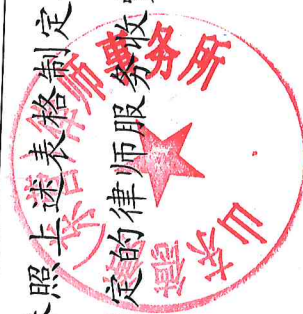 照上述表格制定
定的律师服务收
山东
律师事务所